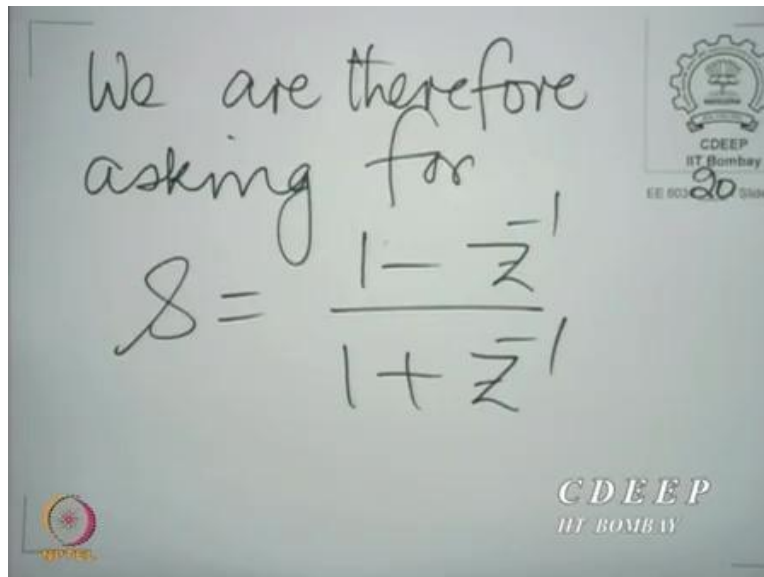 We are therefore
asking for
s = 1 - z^-1
1 + z^-1
CDEEP
IIT Bombay
EE 603 20 Slide
CDEEP
IIT BOMBAY
NPTEL